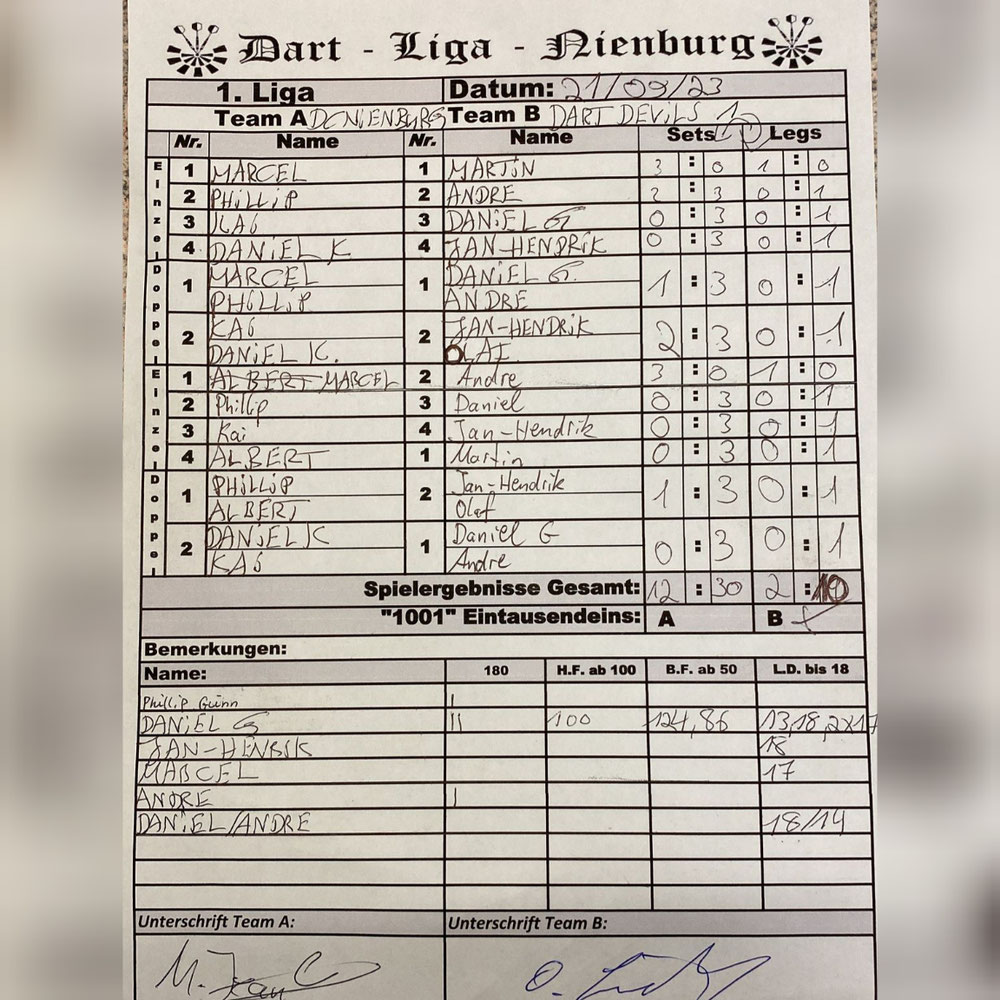 Dart - Liga - Nienburg
1. Liga Datum: 21/09/23
Team A DCNIENBURG Team B DART DEVILS 1
Nr. Name Nr. Name Sets Legs
Einzel
1 MARCEL 1 MARTiN 3 : 0 1 : 0
2 PHiLLiP 2 ANDRE 2 : 3 0 : 1
3 KAi 3 DANiEL G 0 : 3 0 : 1
4 DANiEL K 4 JAN-HENDRiK 0 : 3 0 : 1
Doppel
1 MARCEL 1 DANiEL G. 1 : 3 0 : 1
PHiLLiP ANDRE
2 KAi 2 JAN-HENDRiK 2 : 3 0 : 1
DANiEL K. OLAF
Einzel
1 ALBERT MARCEL 2 Andre 3 : 0 1 : 0
2 Phillip 3 Daniel 0 : 3 0 : 1
3 Kai 4 Jan-Hendrik 0 : 3 0 : 1
4 ALBERT 1 Martin 0 : 3 0 : 1
Doppel
1 PHiLLiP 2 Jan-Hendrik 1 : 3 0 : 1
ALBERT Olaf
2 DANiEL K 1 Daniel G 0 : 3 0 : 1
KAi Andre
Spielergebnisse Gesamt: 12 : 30 2 : 10
"1001" Eintausendeins: A B x
Bemerkungen:
Name: 180 H.F. ab 100 B.F. ab 50 L.D. bis 18
Phillip Günn I
DANiEL G II 100 124,86 13,18,2x17
JAN-HENRiK 18
MARCEL 17
ANDRE I
DANiEL/ANDRE 18/14
Unterschrift Team A: Unterschrift Team B: